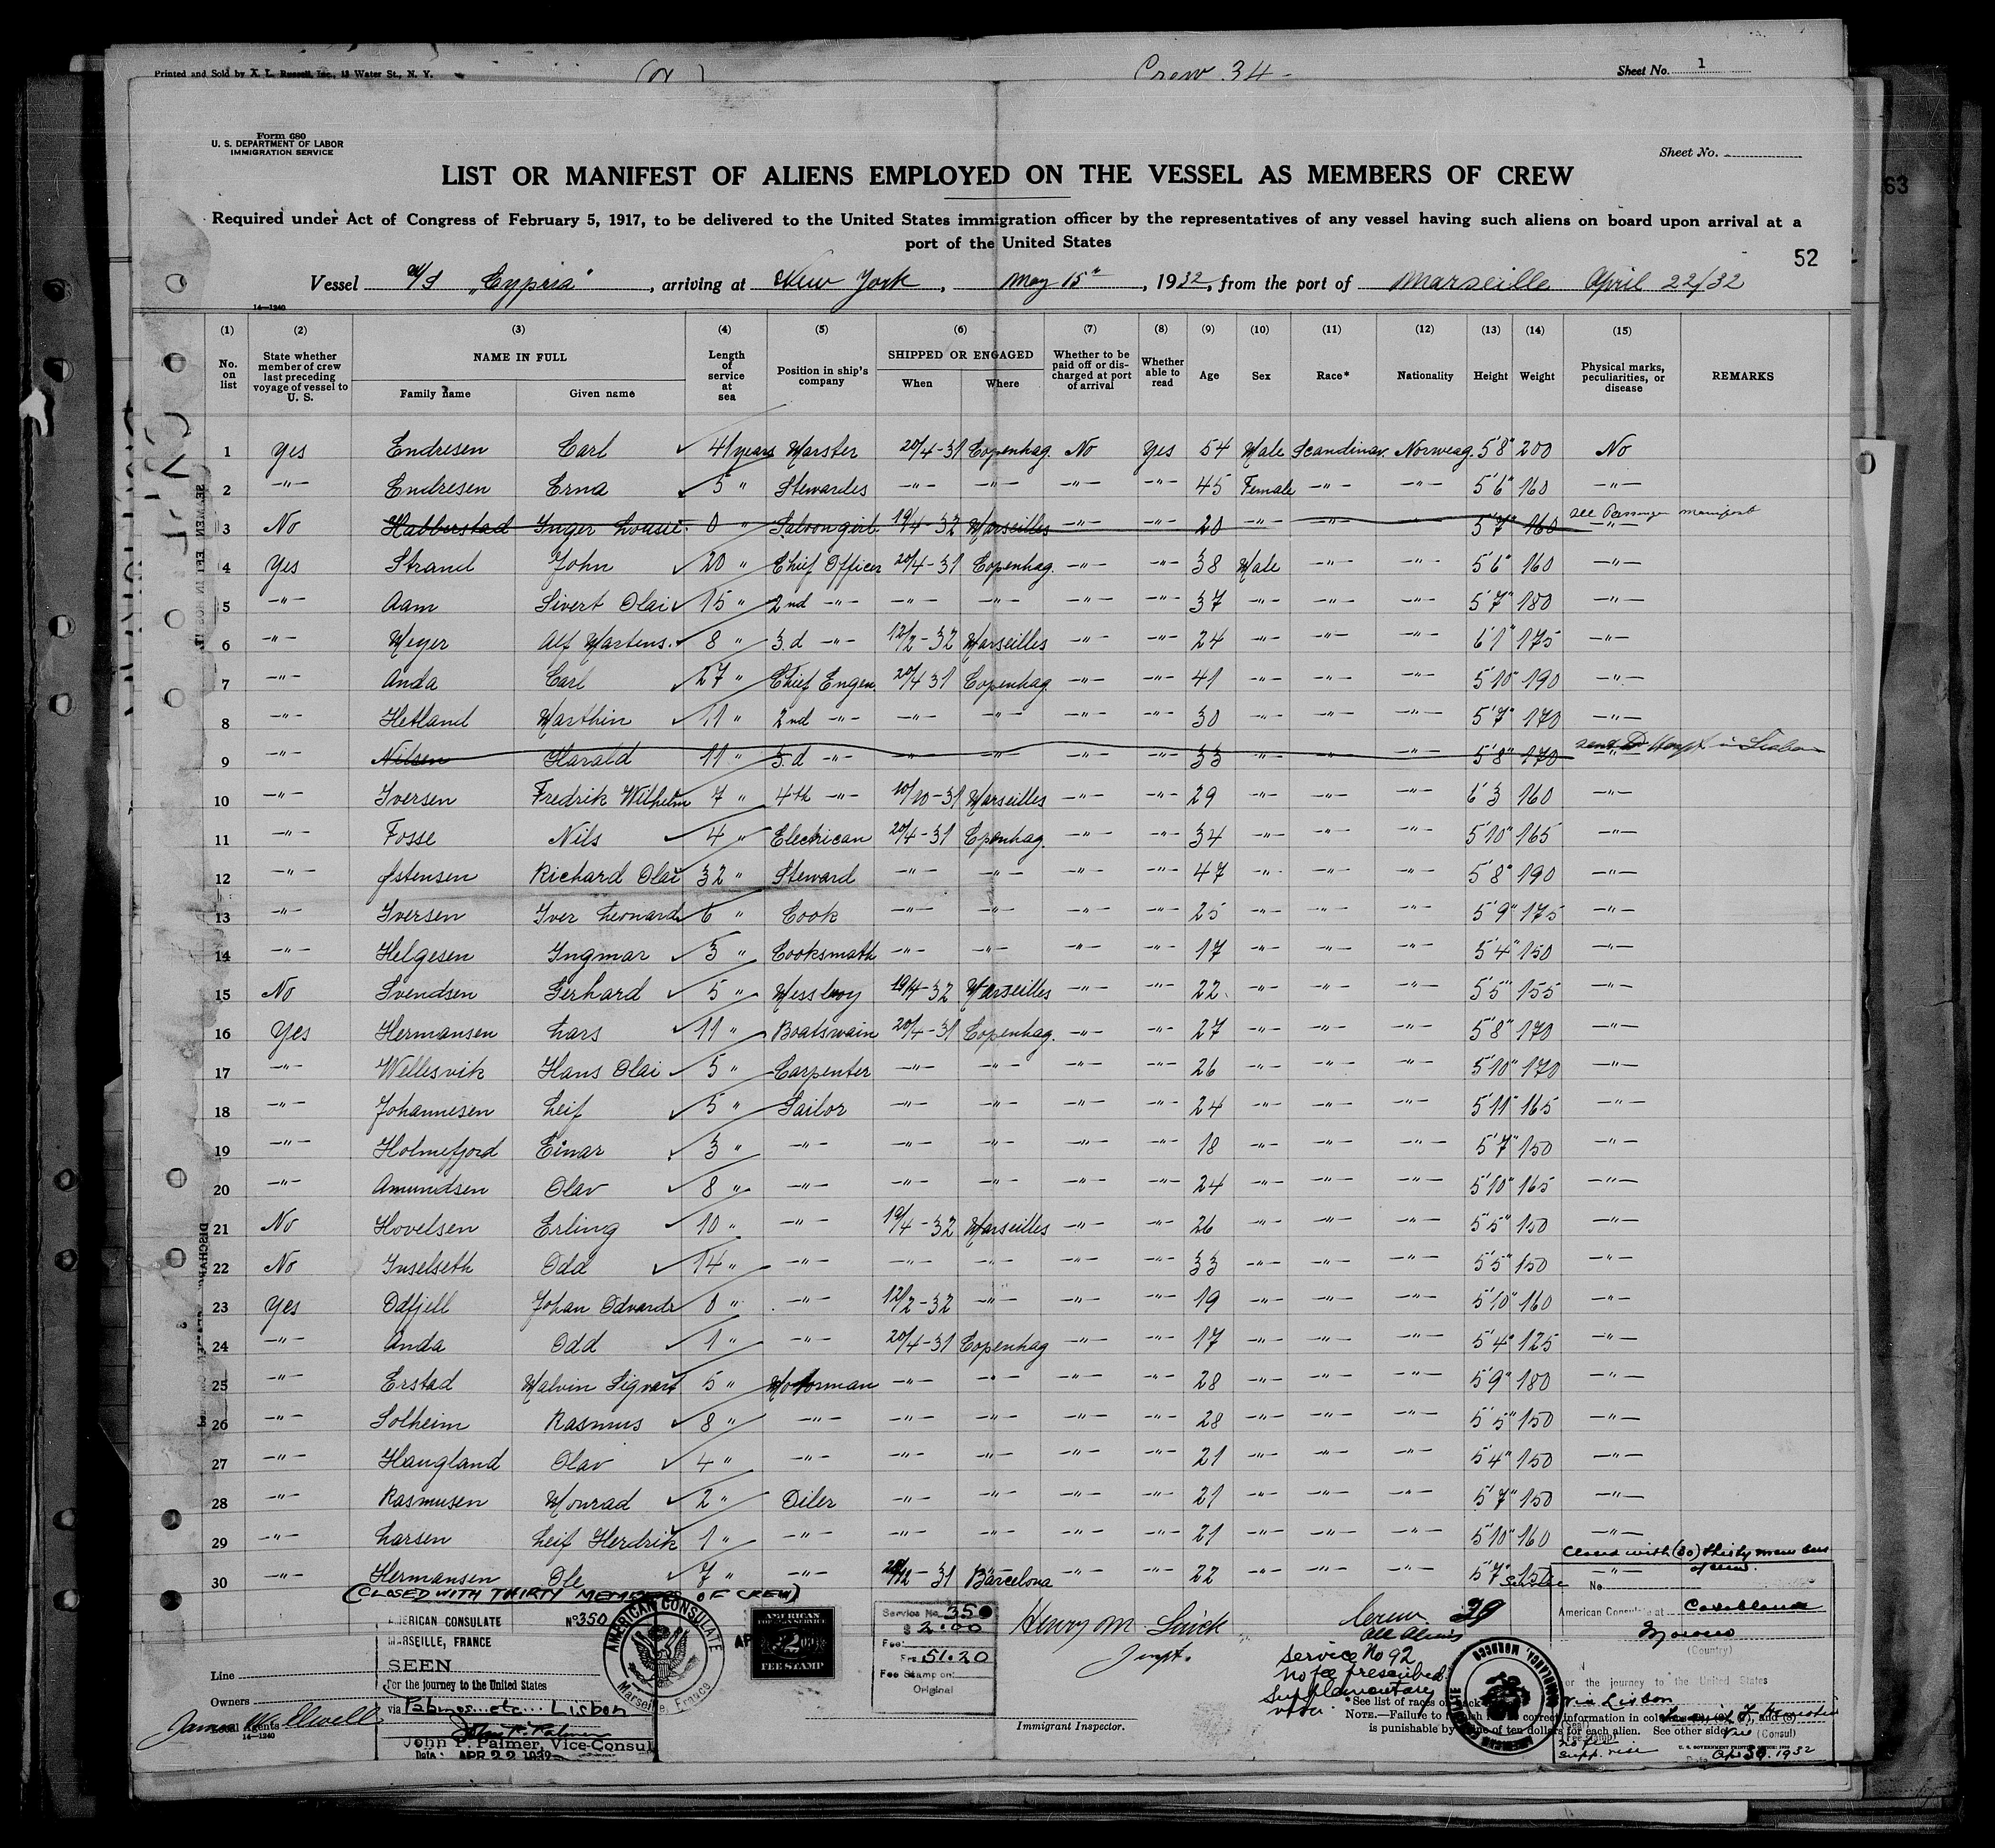 Printed and Sold by A. L. Russell, Inc., 13 Water St., N. Y.
Crew 34 -
Sheet No. 1
Form 680
U. S. DEPARTMENT OF LABOR
IMMIGRATION SERVICE
Sheet No.
LIST OR MANIFEST OF ALIENS EMPLOYED ON THE VESSEL AS MEMBERS OF CREW
63
Required under Act of Congress of February 5, 1917, to be delivered to the United States immigration officer by the representatives of any vessel having such aliens on board upon arrival at a
port of the United States
52
Vessel M/S "Cypria", arriving at New York, May 15th, 1932, from the port of Marseille April 22/32
14—1240
(1) (2) (3) (4) (5) (6) (7) (8) (9) (10) (11) (12) (13) (14) (15)
No. on list State whether member of crew last preceding voyage of vessel to U. S. NAME IN FULL Family name Given name Length of service at sea Position in ship's company SHIPPED OR ENGAGED When Where Whether to be paid off or discharged at port of arrival Whether able to read Age Sex Race* Nationality Height Weight Physical marks, peculiarities, or disease REMARKS
1 Yes Endresen Carl 41 years Marster 20/4-31 Copenhag. No Yes 54 Male Scandinav. Norweag. 5'8" 200 No
2 -"- Endresen Erna 5 " Stewardes -"- -"- -"- -"- 45 Female -"- -"- 5'6" 160 -"-
see Passenger manifest
3 No Habberstad Inger Louise 0 " Saloongirl 19/4-32 Marseilles -"- -"- 20 -"- -"- -"- 5'7" 160 -"-
4 Yes Strand John 20 " Chief Officer 20/4-31 Copenhag. -"- -"- 38 Male -"- -"- 5'6" 160 -"-
5 -"- Aam Sivert Olai 15 " 2nd -"- -"- -"- -"- -"- 37 -"- -"- -"- 5'7" 180 -"-
6 -"- Meyer Alf Martens. 8 " 3.d -"- 12/2-32 Marseilles -"- -"- 24 -"- -"- -"- 6'1" 175 -"-
7 -"- Anda Carl 27 " Chief Engen. 20/4 31 Copenhag. -"- -"- 41 -"- -"- -"- 5'10" 190 -"-
8 -"- Hetland Marthin 11 " 2nd -"- -"- -"- -"- -"- 30 -"- -"- -"- 5'7" 170 -"-
9 -"- Nilsen Harald 11 " 3.d -"- -"- -"- 33 -"- -"- -"- 5'8" 170 -"- in Lisbon
10 -"- Iversen Fredrik Wilhelm 7 " 4th -"- 10/10-31 Marseilles -"- -"- 29 -"- -"- -"- 6'3 160 -"-
11 -"- Fosse Nils 4 " Electrican 20/4-31 Copenhag. -"- -"- 34 -"- -"- -"- 5'10" 165 -"-
12 -"- Østensen Richard Olai 32 " Steward -"- -"- -"- -"- 47 -"- -"- -"- 5'8" 190 -"-
13 -"- Iversen Iver Leonard 6 " Cook -"- -"- -"- -"- 25 -"- -"- -"- 5'9" 175 -"-
14 -"- Helgesen Ingmar 3 " Cooksmath -"- -"- -"- -"- 17 -"- -"- -"- 5'4" 150 -"-
15 No Svendsen Gerhard 5 " Messboy 19/4-32 Marseilles -"- -"- 22 -"- -"- -"- 5'5" 155 -"-
16 Yes Hermansen Lars 11 " Boatswain 20/4-31 Copenhag. -"- -"- 27 -"- -"- -"- 5'8" 170 -"-
17 -"- Wellesvik Hans Olai 5 " Carpenter -"- -"- -"- -"- 26 -"- -"- -"- 5'10" 170 -"-
18 -"- Johannesen Leif 5 " Sailor -"- -"- -"- -"- 24 -"- -"- -"- 5'11" 165 -"-
19 -"- Holmefjord Einar 3 " -"- -"- -"- -"- -"- 18 -"- -"- -"- 5'7" 150 -"-
20 -"- Amundsen Olav 8 " -"- -"- -"- -"- -"- 24 -"- -"- -"- 5'10" 165 -"-
21 No Hovelsen Erling 10 " -"- 19/4-32 Marseilles -"- -"- 26 -"- -"- -"- 5'5" 150 -"-
22 No Inselseth Odd 14 " -"- -"- -"- -"- -"- 33 -"- -"- -"- 5'5" 150 -"-
23 Yes Odfjell Johan Odvardr 0 " -"- 12/2-32 -"- -"- -"- 19 -"- -"- -"- 5'10" 160 -"-
24 -"- Anda Odd 1 " -"- 20/4-31 Copenhag -"- -"- 17 -"- -"- -"- 5'4" 125 -"-
25 -"- Erstad Malvin Sigvart 5 " Motorman -"- -"- -"- -"- 28 -"- -"- -"- 5'9" 180 -"-
26 -"- Solheim Rasmus 8 " -"- -"- -"- -"- -"- 28 -"- -"- -"- 5'5" 150 -"-
27 -"- Haugland Olav 4 " -"- -"- -"- -"- -"- 21 -"- -"- -"- 5'4" 150 -"-
28 -"- Rasmusen Monrad 2 " Oiler -"- -"- -"- -"- 21 -"- -"- -"- 5'7" 150 -"-
29 -"- Larsen Leif Herdrik 1 " -"- -"- -"- -"- -"- 21 -"- -"- -"- 5'10" 160 -"-
Closed with (30) thirty members of crew.
30 -"- Hermansen Ole 7 " -"- 31 Barcelona -"- -"- 22 -"- -"- -"- 5'7" 150 -"-
(CLOSED WITH THIRTY MEMBERS OF CREW)
AMERICAN CONSULATE No 350
MARSEILLE, FRANCE
SEEN
For the journey to the United States
via Palmos etc Lisbon
John P. Palmer, Vice-Consul
Date: APR 22 1932
AMERICAN CONSULATE
Marseille, France
AMERICAN
FOREIGN SERVICE
$2.00
FEE STAMP
Service No. 350
$ 2.00
Fee:
Frs 51.20
Fee Stamp on
Original
Henry M
Inspt.
Immigrant Inspector.
Crew 29
All Aliens
Service No 92
No fee prescribed
Supplementary
visa
Service No.
American Consulate at Casablanca
Morocco
(Country)
for the journey to the United States
via Lisbon
(Consul)
(Seal)
(Fee stamp)
no fee
supp. visa
Date Apr 30, 1932
AMERICAN CONSULATE CASABLANCA, MOROCCO
Line
Owners
Local Agents
14—1240
*See list of races on back
NOTE.—Failure to furnish full or correct information in columns (2), (3), (7), and (8)
is punishable by a fine of ten dollars for each alien. See other side.
U. S. GOVERNMENT PRINTING OFFICE: 1930